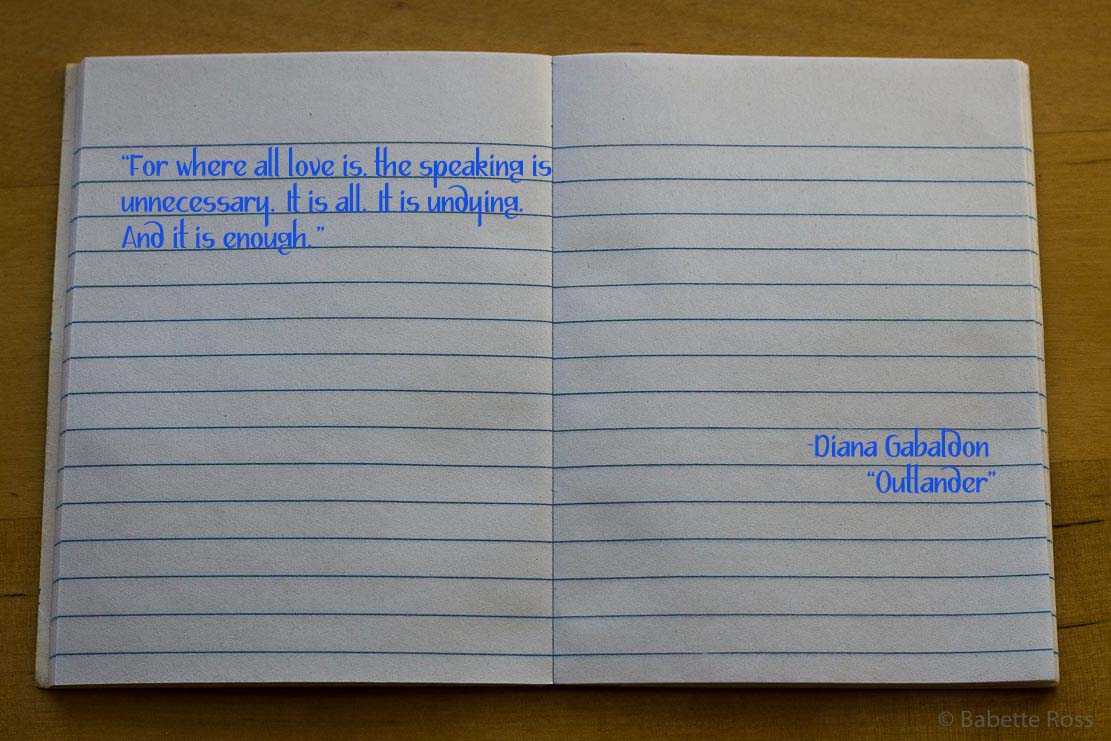 “For where all love is, the speaking is
unnecessary. It is all. It is undying.
And it is enough.”
-Diana Gabaldon
“Outlander”
© Babette Ross